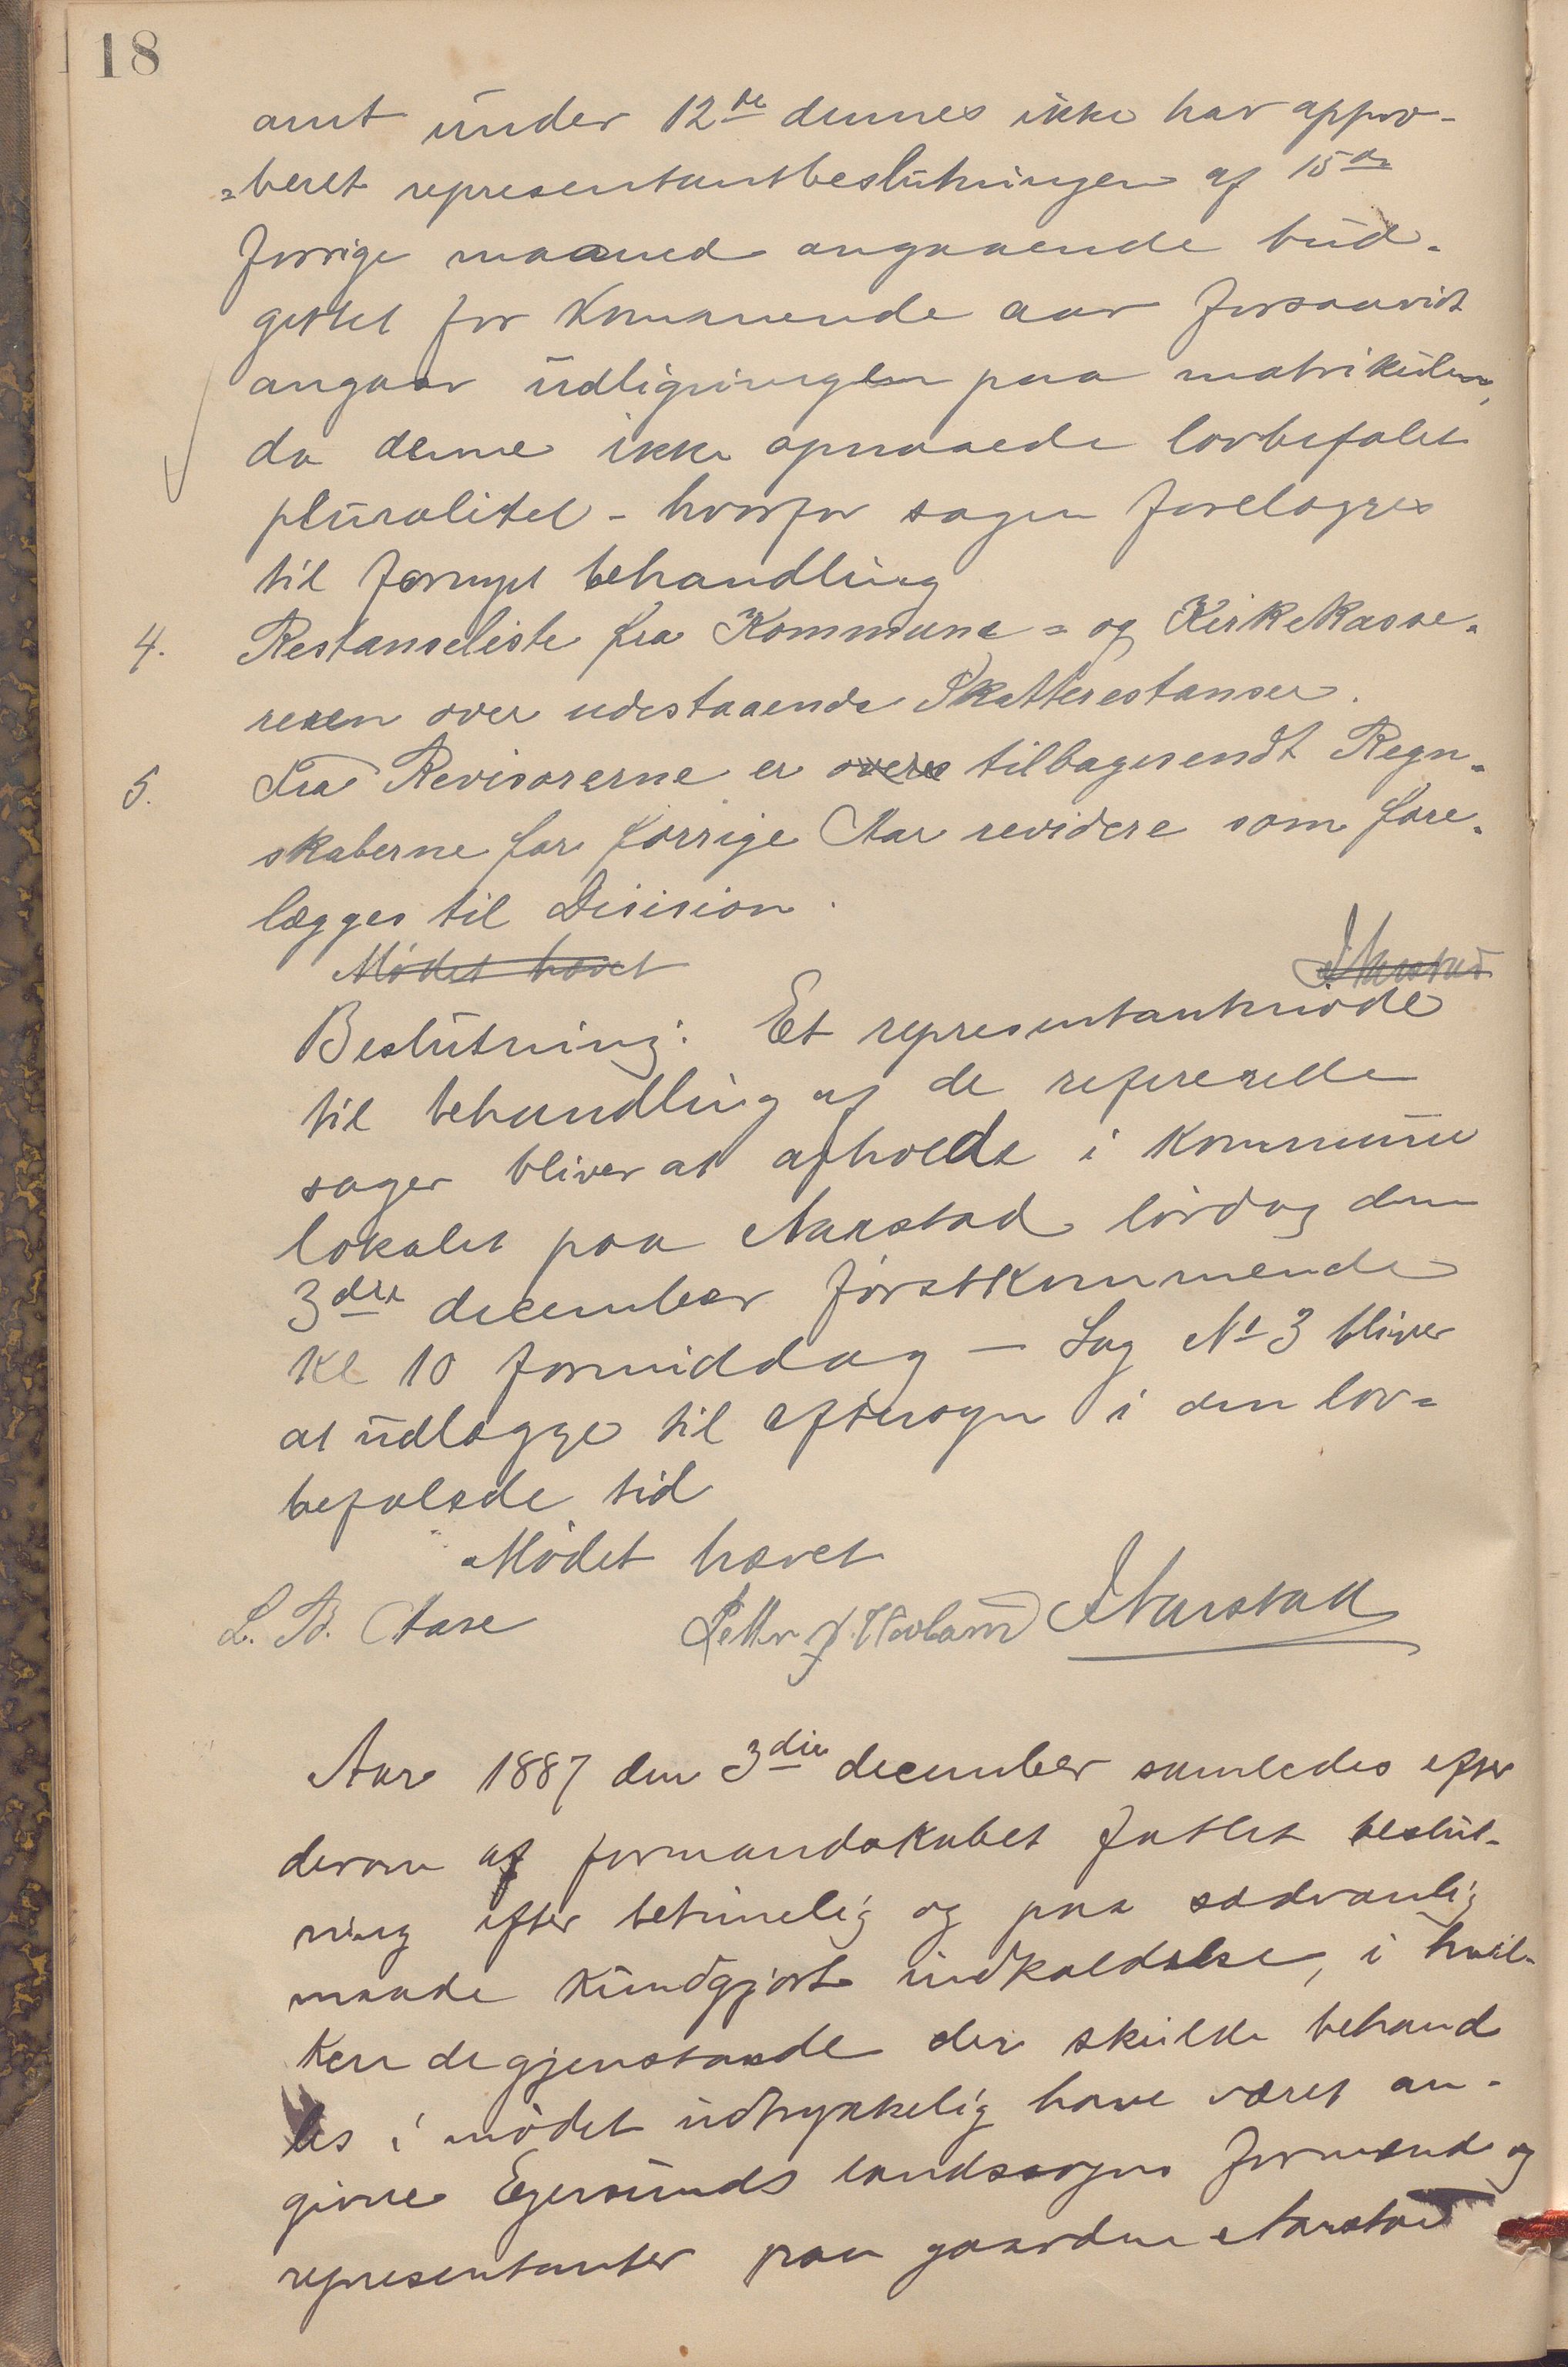 18
amt under 12de dennes ikke har appro-
=beret representantbeslutningen af 15de
forrige maaned angaaende bud-
gettet for kommende aar forsaavidt
angaar udligningen paa matrikulen,
da denne ikke opnaaede lovbefalet
pluralitet - hvorfor sagen forelægges
til fornyet behandling
4. Restanseliste fra Kommune= og Kirkekasse-
reren over udestaaende Skatterestanser.
5. Fra Revisorerne er overs tilbagesendt Regn-
skaberne for forrige Aar revidere som fore-
lægges til Disision.
Mødet hævet
JAarstad
Beslutning: Et representantmøde
til behandling af de refererede
sager bliver at afholde i kommune
lokalet paa Aarstad lørdag den
3die december førstkommende
Kl 10 formiddag - Sag No 3 bliver
at udlægge til eftersyn i den lov=
befalede tid
Mødet hævet
L. B. Aase Petter J. Hovland JAarstad
Aar 1887 den 3die december samledes efter
derom af formandskabet fattet beslut-
ning efter betimelig og paa sædvanlig
maade kundgjort indkaldelse, i hvil-
ken de gjenstande der skulde behand
les i mødet udtrykkelig have været an-
givne Egersunds landssogns formænd og
representanter paa gaarden Aarstad